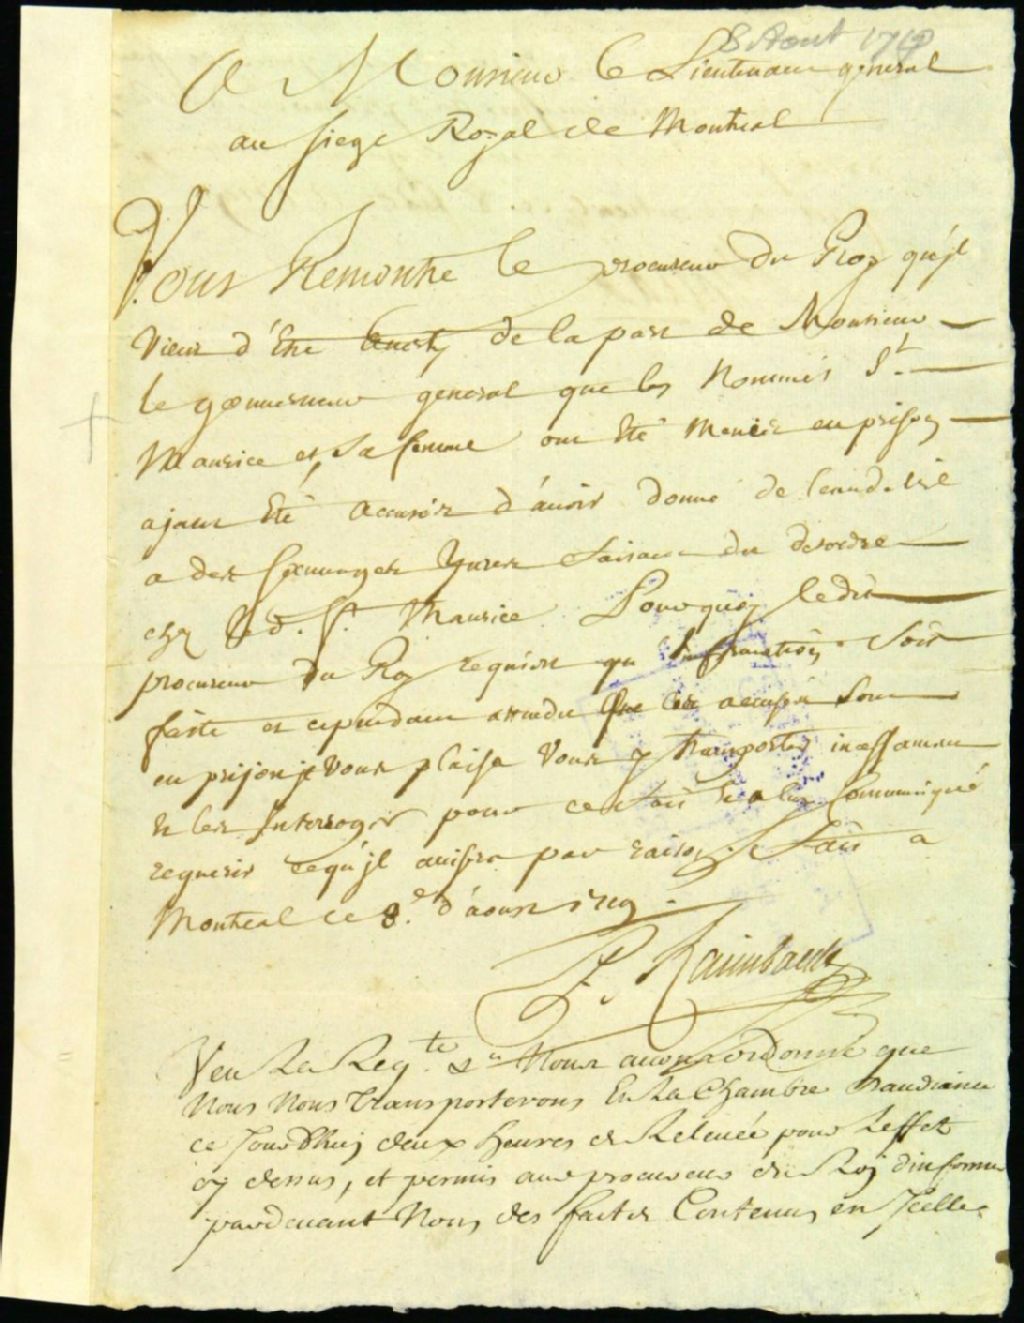 8 Aout 1719
A Monsieur Le Lieutenant general
au siege Royal de Montreal
Vous Remontre le procureur du Roy qu'jl
vient d'être averty de la part de Monsieur
le gouverneur general que les Nommés St.
Maurice et sa femme ont été menéz en prison
ajant été accuséz d'avoir donné de leaud.vie
a des sauvages yvres faisant du desordre
chez led. St. Maurice Pourquoy ledit
procureur du Roy requiert qu'information soit
faite et cependant attendu que les accusés sont
en prison jl vous plaise vous y transporter incessament
et les Interroger pour ce fait et a luy Communiqué
requerir ce qu'jl avisera par raison. Fait a
Montreal ce 8e. d'aoust 1719
P. Raimbault
Veu La Reqte. Nous avons ordonné que
Nous Nous transporterons En La Chambre
ce Jourdhuy deux heures de Relevée pour L'effet
cy dessus, et permis au procureur du Roj d'informer
pardevant Nous des faits Contenus en Jcelle